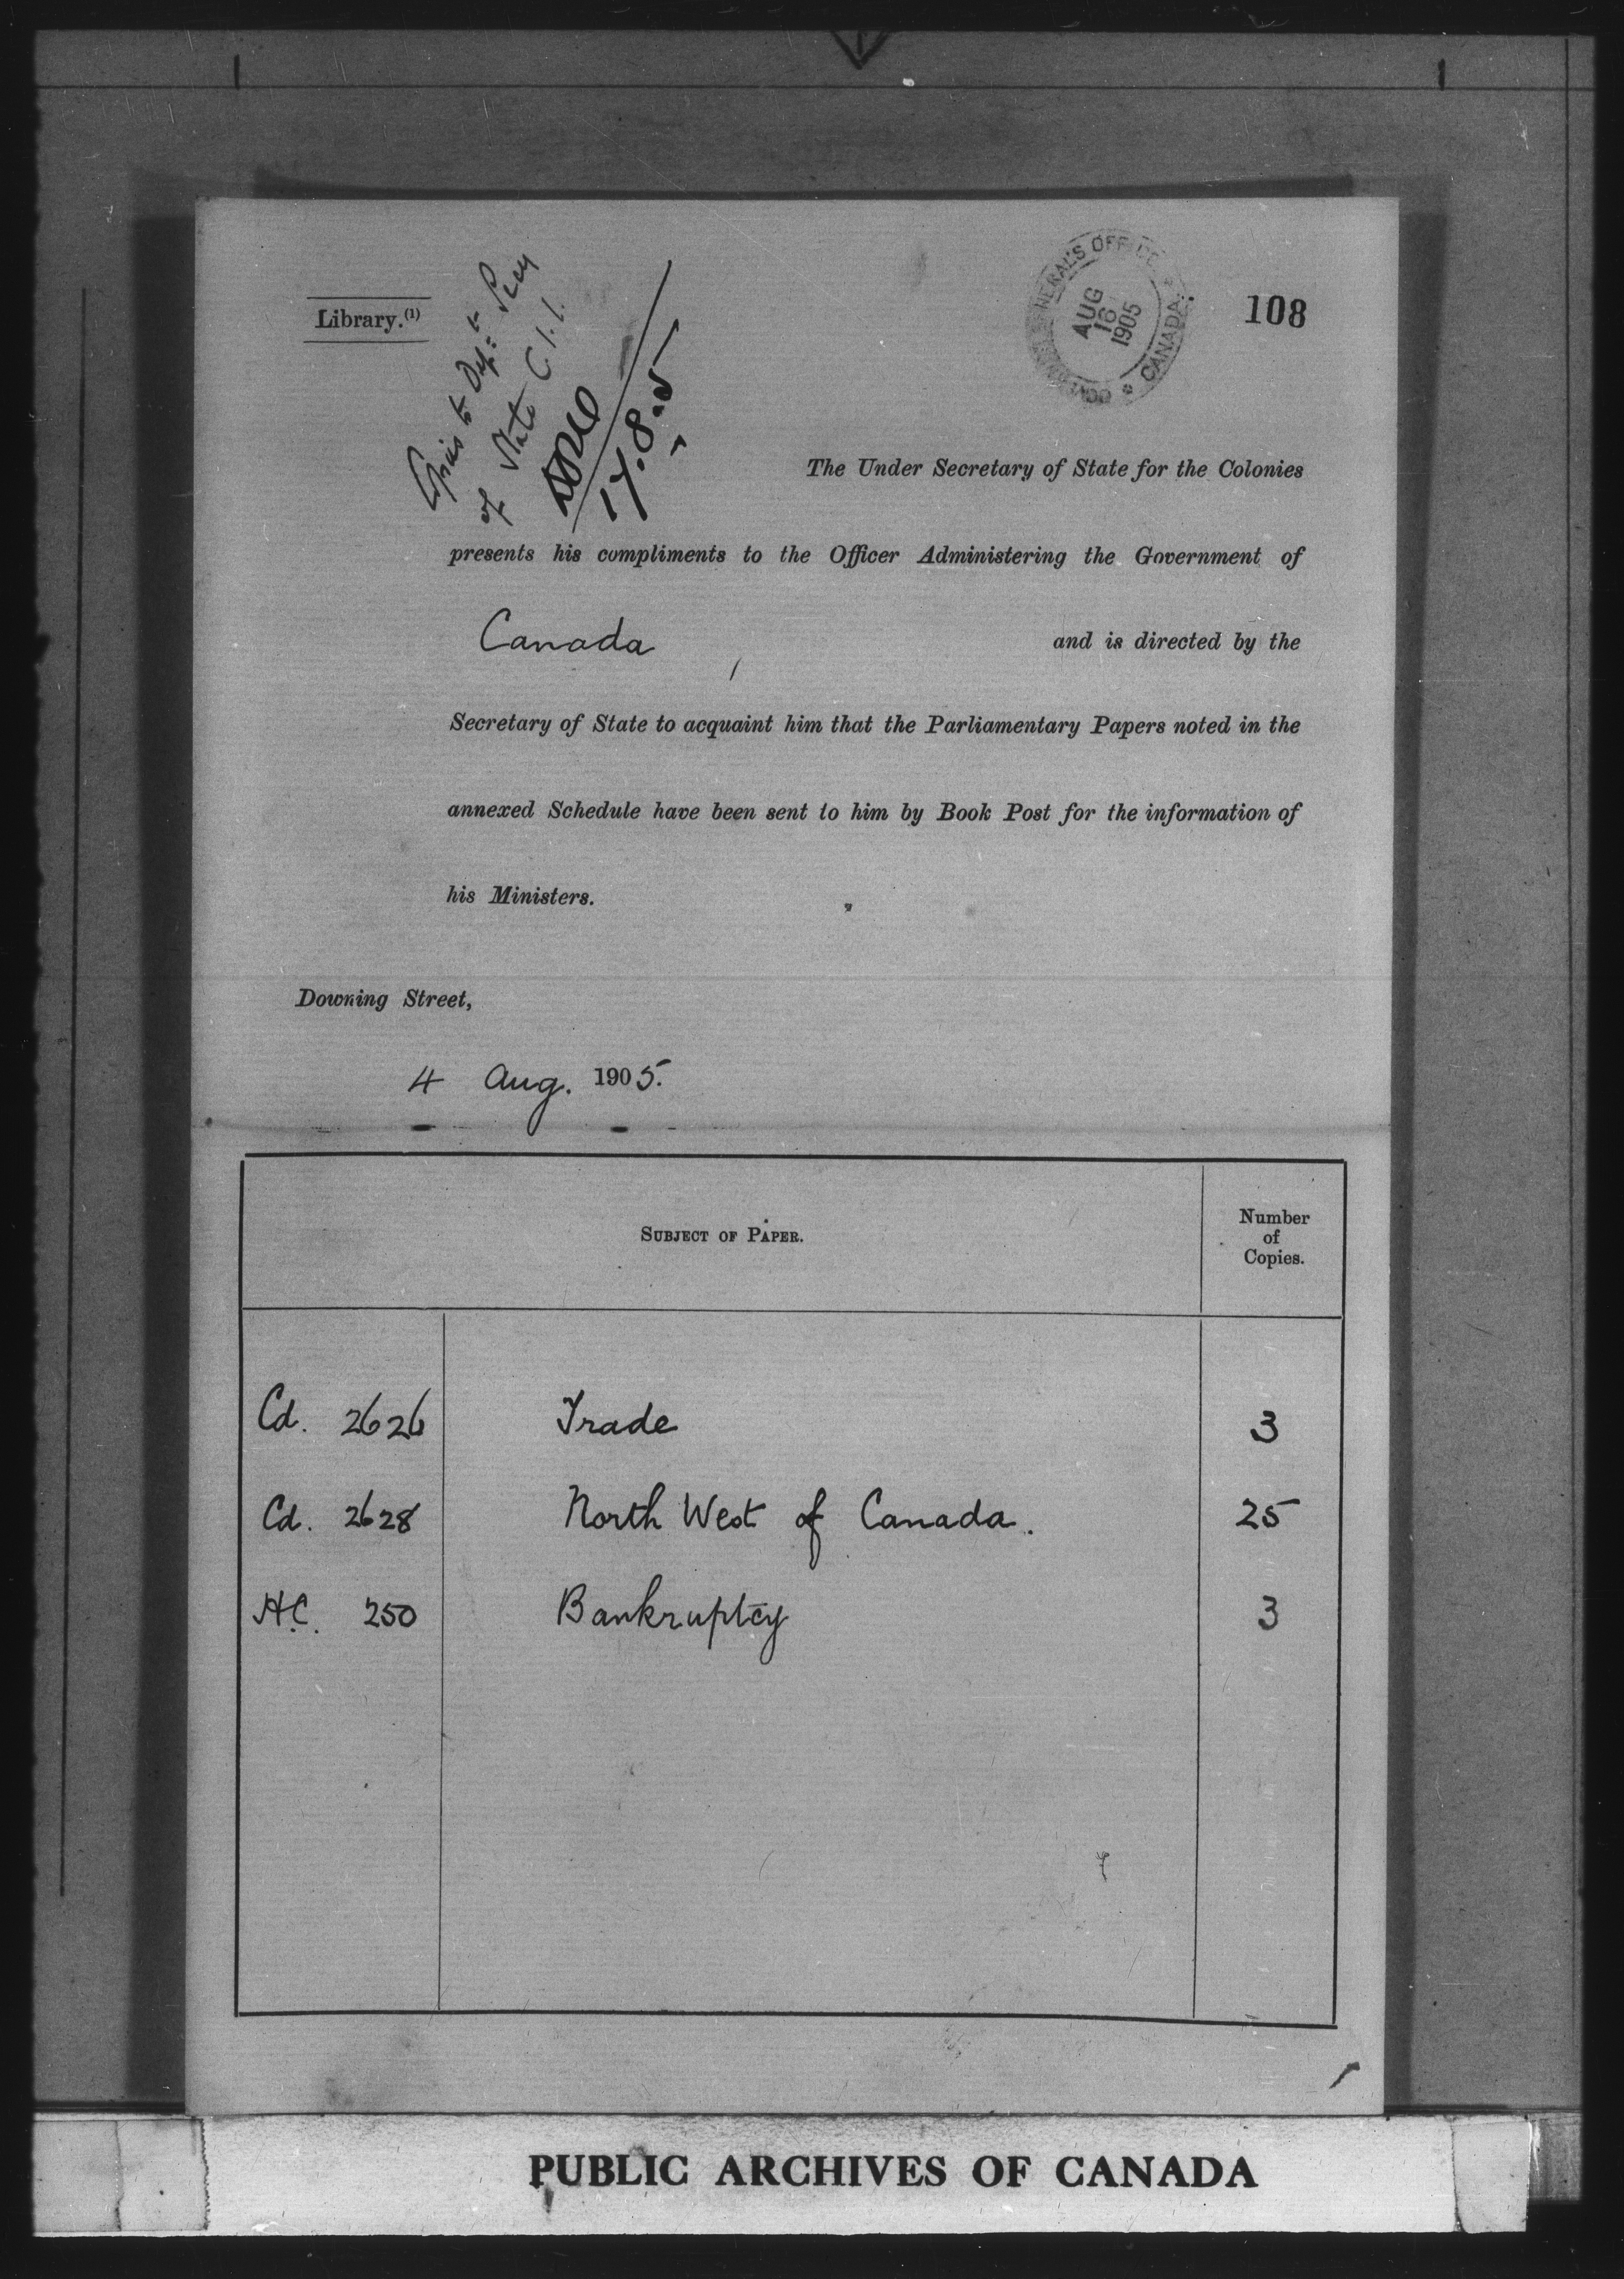 Library.(1)
Copies to Dept Secy
of State
17.8.05
GOVERNOR GENERAL'S OFFICE * CANADA *
AUG
16
1905
108
The Under Secretary of State for the Colonies
presents his compliments to the Officer Administering the Government of
Canada , and is directed by the
Secretary of State to acquaint him that the Parliamentary Papers noted in the
annexed Schedule have been sent to him by Book Post for the information of
his Ministers.
Downing Street,
4 Aug. 1905.
SUBJECT OF PAPER.
Number
of
Copies.
Cd. 2626 Trade 3
Cd. 2628 North West of Canada. 25
H.C. 250 Bankruptcy 3
PUBLIC ARCHIVES OF CANADA